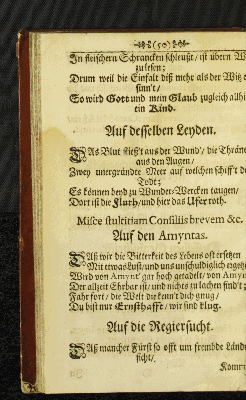 (50)
In fleischern Schrancken schleußt / ist übern W
zu lesen;
Drum weil die Einfalt diß mehr als der Witz e
sinn't /
So wird Gott und mein Glaub zugleich allhi
ein Kind.
Auf desselben Leyden.
DAs Blut fließt aus der Wund' / die Thräne
aus den Augen /
Zwey unergründte Meer auf welchen schifft d
Todt;
Es können beyd zu Wunder-Wercken taugen /
Dort ist die Fluth / und hier das Ufer roth.
Misce stultitiam Consiliis brevem &c.
Auf den Amyntas.
DAß wir die Bitterkeit des Lebens oft ersetzen
Mit etwas Lust / und uns unschuldiglich ergötze
Wird von Amynt' gar hoch getadelt / von Amyn
Der allzeit Ehrbar ist / und nichts zu lachen find't;
Fahr fort / die Welt die kenn't dich gnug /
Du bist nur Ernsthafft / wir sind klug.
Auf die Regiersucht.
DAß mancher Fürst so offt um frembde Länd
ficht /
Komm